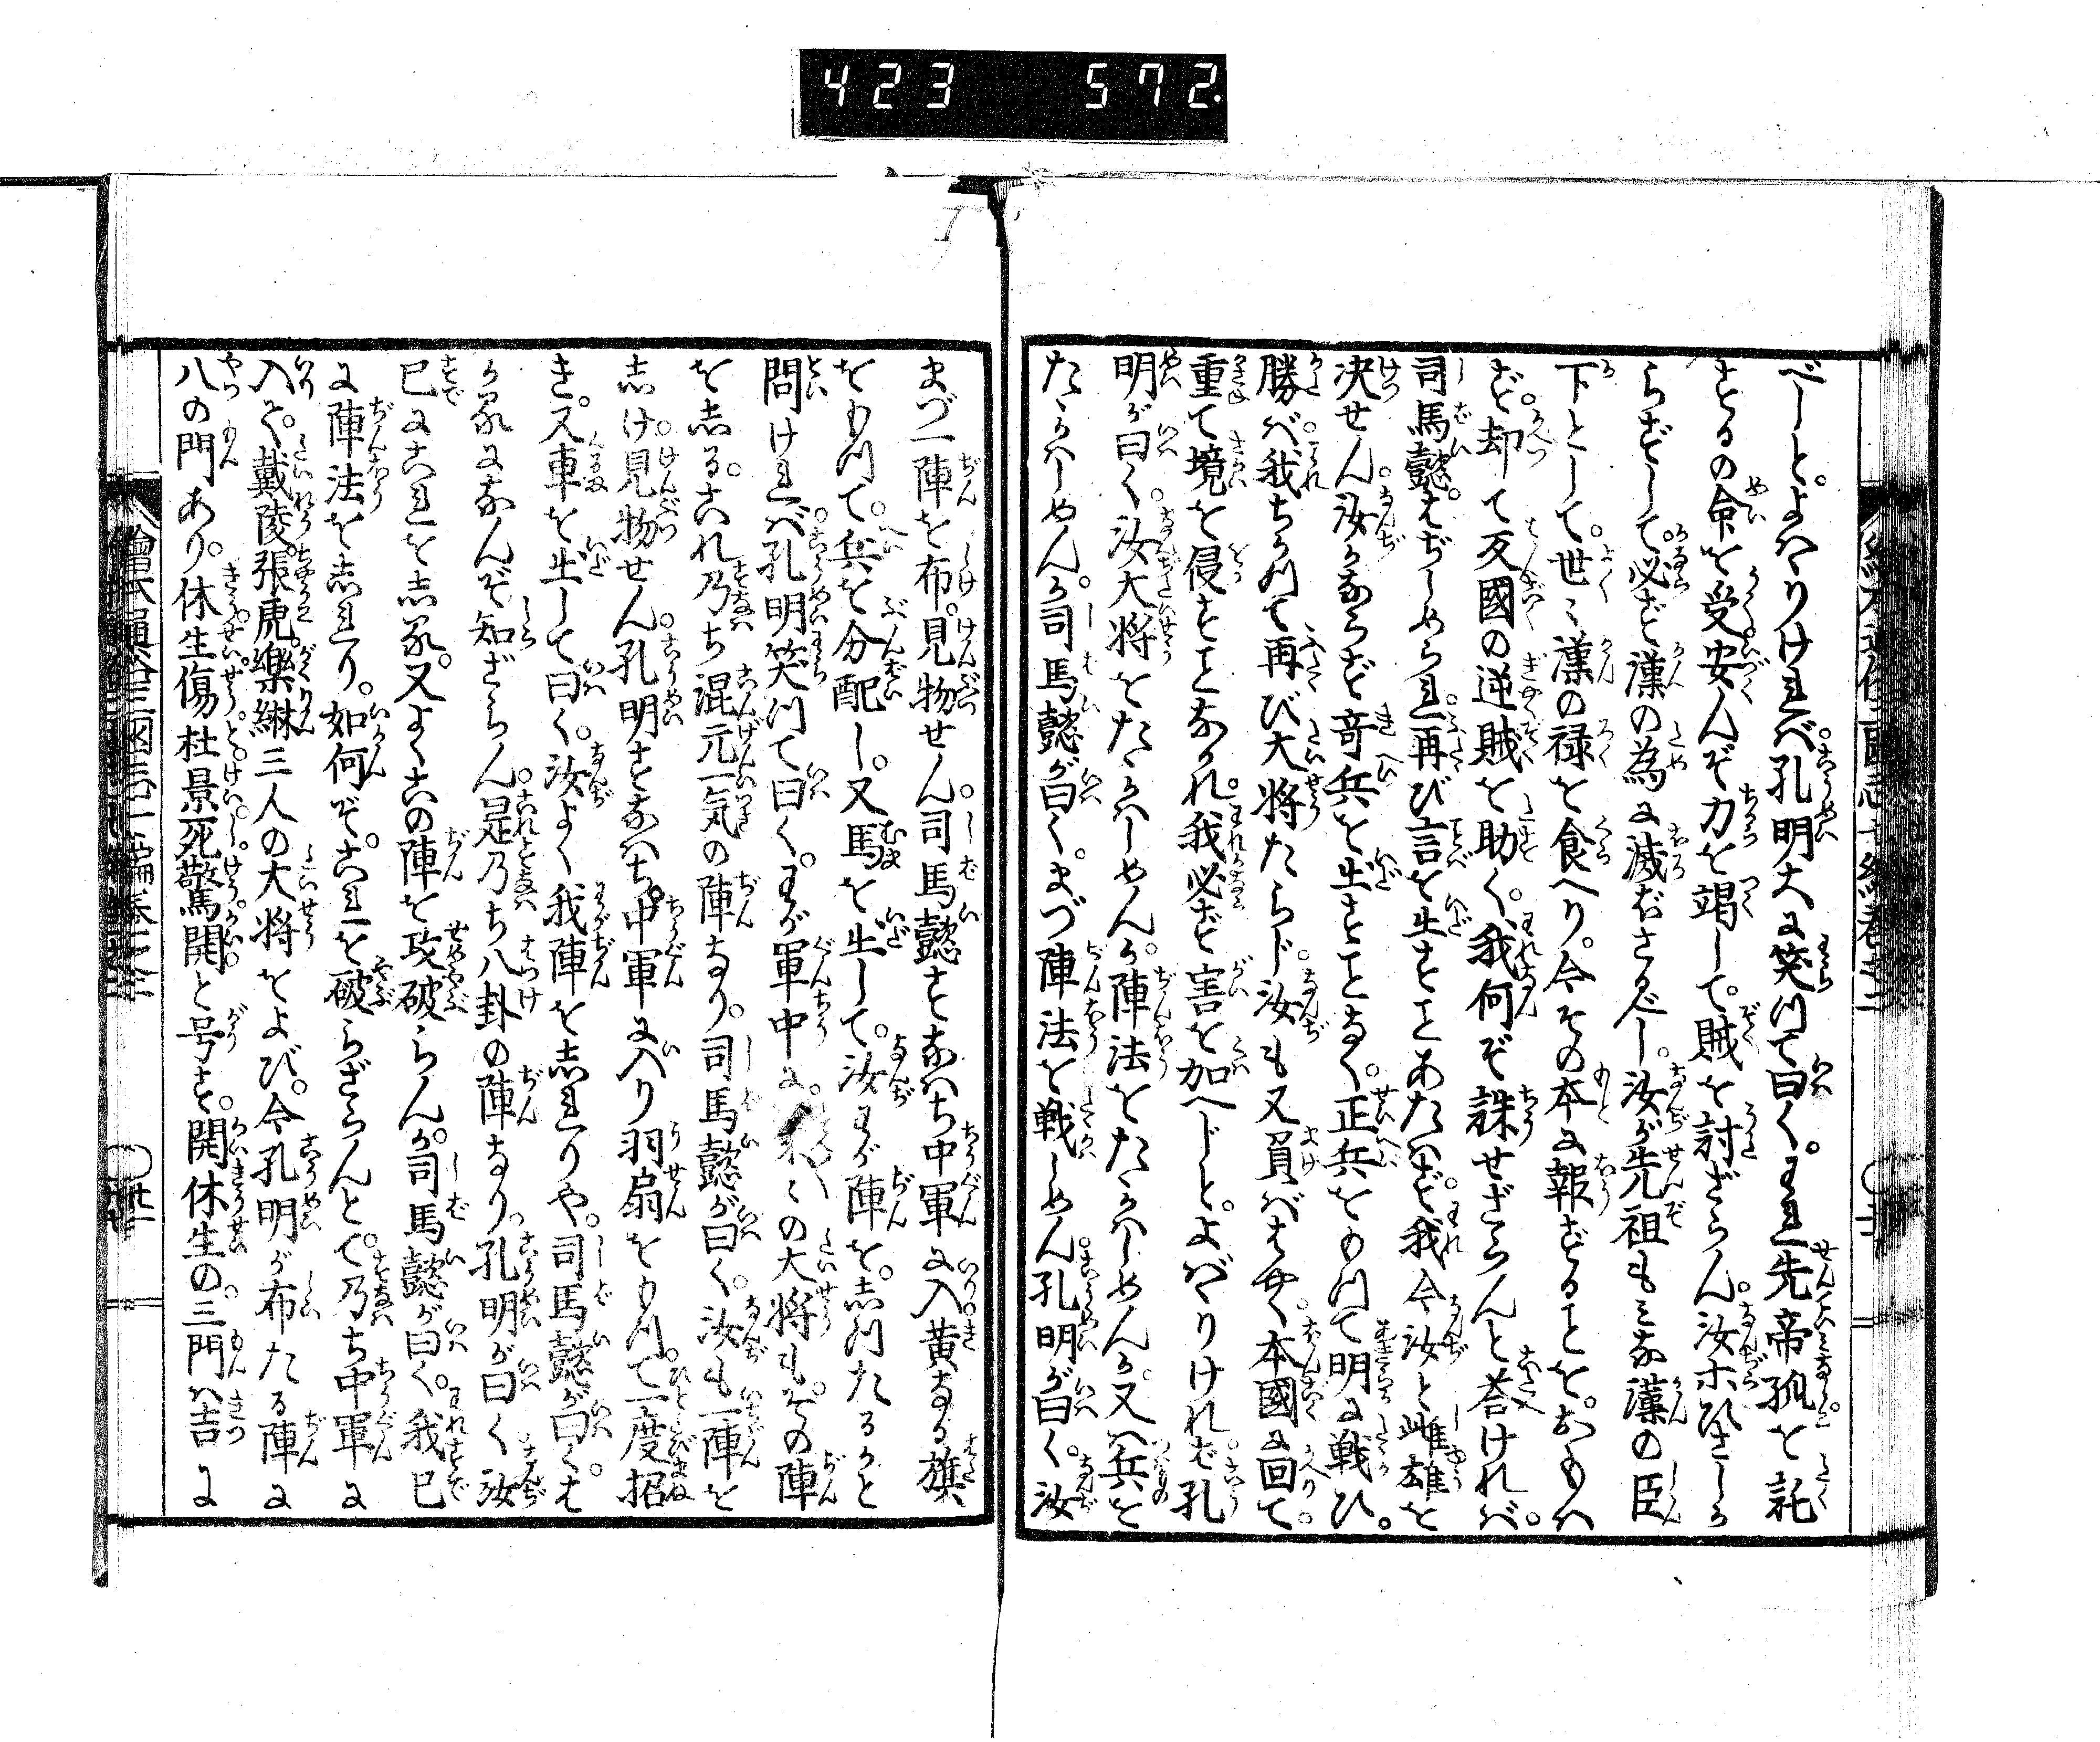 423 572
べしとよバりければ孔明大に笑つて曰くわれ先帝孤を託
するの命を受安んぞ力を竭して賊を討ざらん汝ホ久しか
らずして必ず漢の為に滅ぼさるべし汝が先祖もミな漢の臣
下として世ミ漢の禄を食へり今その本に報ずることをおもハ
ず却て反國の逆賊を助く我何ぞ誅せざらんと答けれバ
司馬懿はぢしめられ再び言を出すことあたハず我今汝と雌雄を
决せん汝かならず竒兵を出すことなく正兵をもつて明に戦ひ
勝バ我ちかつて再び大将たらじ汝も又負バはやく本國に回て
重て境を侵すことなかれ我必ず害を加へじとよバりけれバ孔
明が曰く汝大将をたゝかハしめんか陣法をたゝかハしめんか又ハ兵を
たゝかハしめんか司馬懿が曰くまづ陣法を戦しめん孔明が曰く汝
まづ一陣を布け見物せん司馬懿すなハち中軍に入黄なる旗
をもつて兵を分配し又馬を出して汝わが陣を志つたるかと
問ければ孔明笑つて曰くわが軍中に末ミの大将もその陣
を志るこれ乃ち混元一気の陣なり司馬懿が曰く汝も一陣を
志け見物せん孔明すなハち中軍に入り羽扇をもつて一度招
き又車を出して曰く汝よく我陣を志れりや司馬懿が曰くは
か家になんぞ知ざらん是乃ち八卦の陣なり孔明が曰く汝
已にこれを志る又よくこの陣を攻破らんか司馬懿が曰く我已
に陣法を志れり如何ぞこれを破らざらんとて乃ち中軍に
入て戴陵張虎樂綝三人の大将をよび今孔明が布たる陣に
八の門あり休生傷杜景死驚開と号す開休生の三門ハ吉に